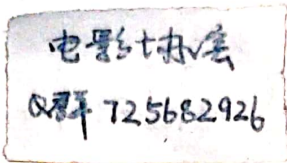 电影+热度
Q群 725682926